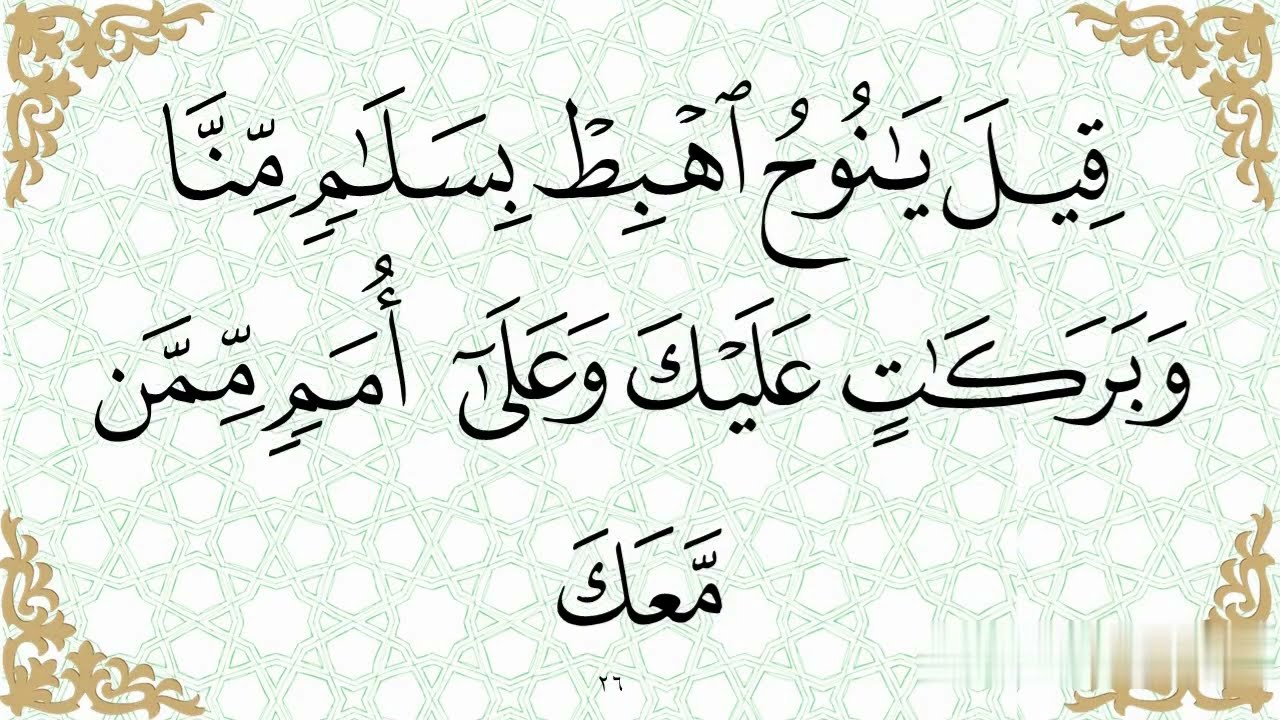 قِيلَ يَـٰنُوحُ ٱهْبِطْ بِسَلَـٰمٍ مِّنَّا
وَبَرَكَـٰتٍ عَلَيْكَ وَعَلَىٰٓ أُمَمٍ مِّمَّن
مَّعَكَ
٢٦